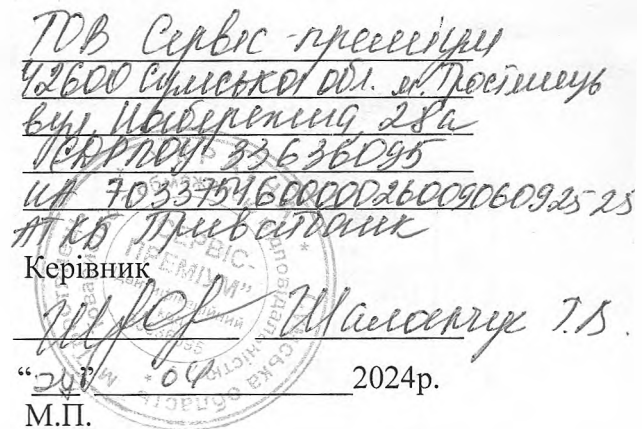 ТОВ Сервіс-преміум
42600 Сумська обл. м. Тростянець
вул. Набережна 28а
ЄДРПОУ 33636095
UA 70337546000002600906092525
АТ КБ Приватбанк
Керівник
Шаланчук Т.В.
“24” 04 2024р.
М.П.
СЕРВІС-
ПРЕМІУМ”